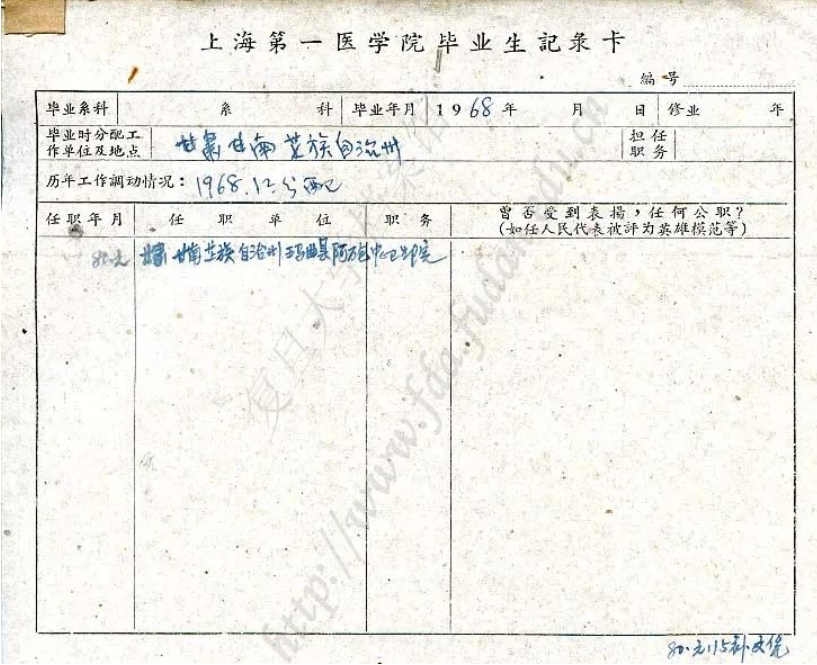 上海第一医学院毕业生記录卡
编号
毕业系科 系 科 毕业年月 1968年 月 日 修业 年
毕业时分配工作单位及地点 甘肃甘南芷族自治州 担任职务
历年工作調动情况：1968.12分配
任职年月 任职单位 职务 曾否受到表揚，任何公职？
(如任人民代表被評为英雄模范等)
甘肃甘南芷族自治州玛曲县阿万仓中心卫生院
复旦大学档案馆
http://www.fda.fudan.edu.cn